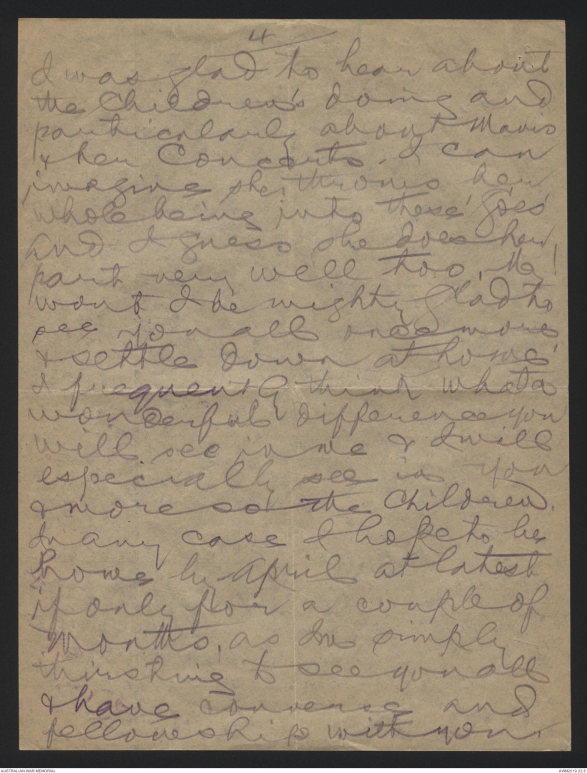 4
I was glad to hear about
the Children's doing and
particularly about Mavis
& her Concerts. I can
imagine she throws her
whole being into these goes
and I guess she does her
part very well too. My!
wont I be mighty glad to
see you all once more
& settle down at home
I frequently think what a
wonderful difference you
will see in me & I will
especially see in you
& more so the Children.
In any case I hope to be
home by April at latest
if only for a couple of
months, as Im simply
thirsting to see you all
& have converse and
fellowship with you.
AUSTRALIAN WAR MEMORIAL